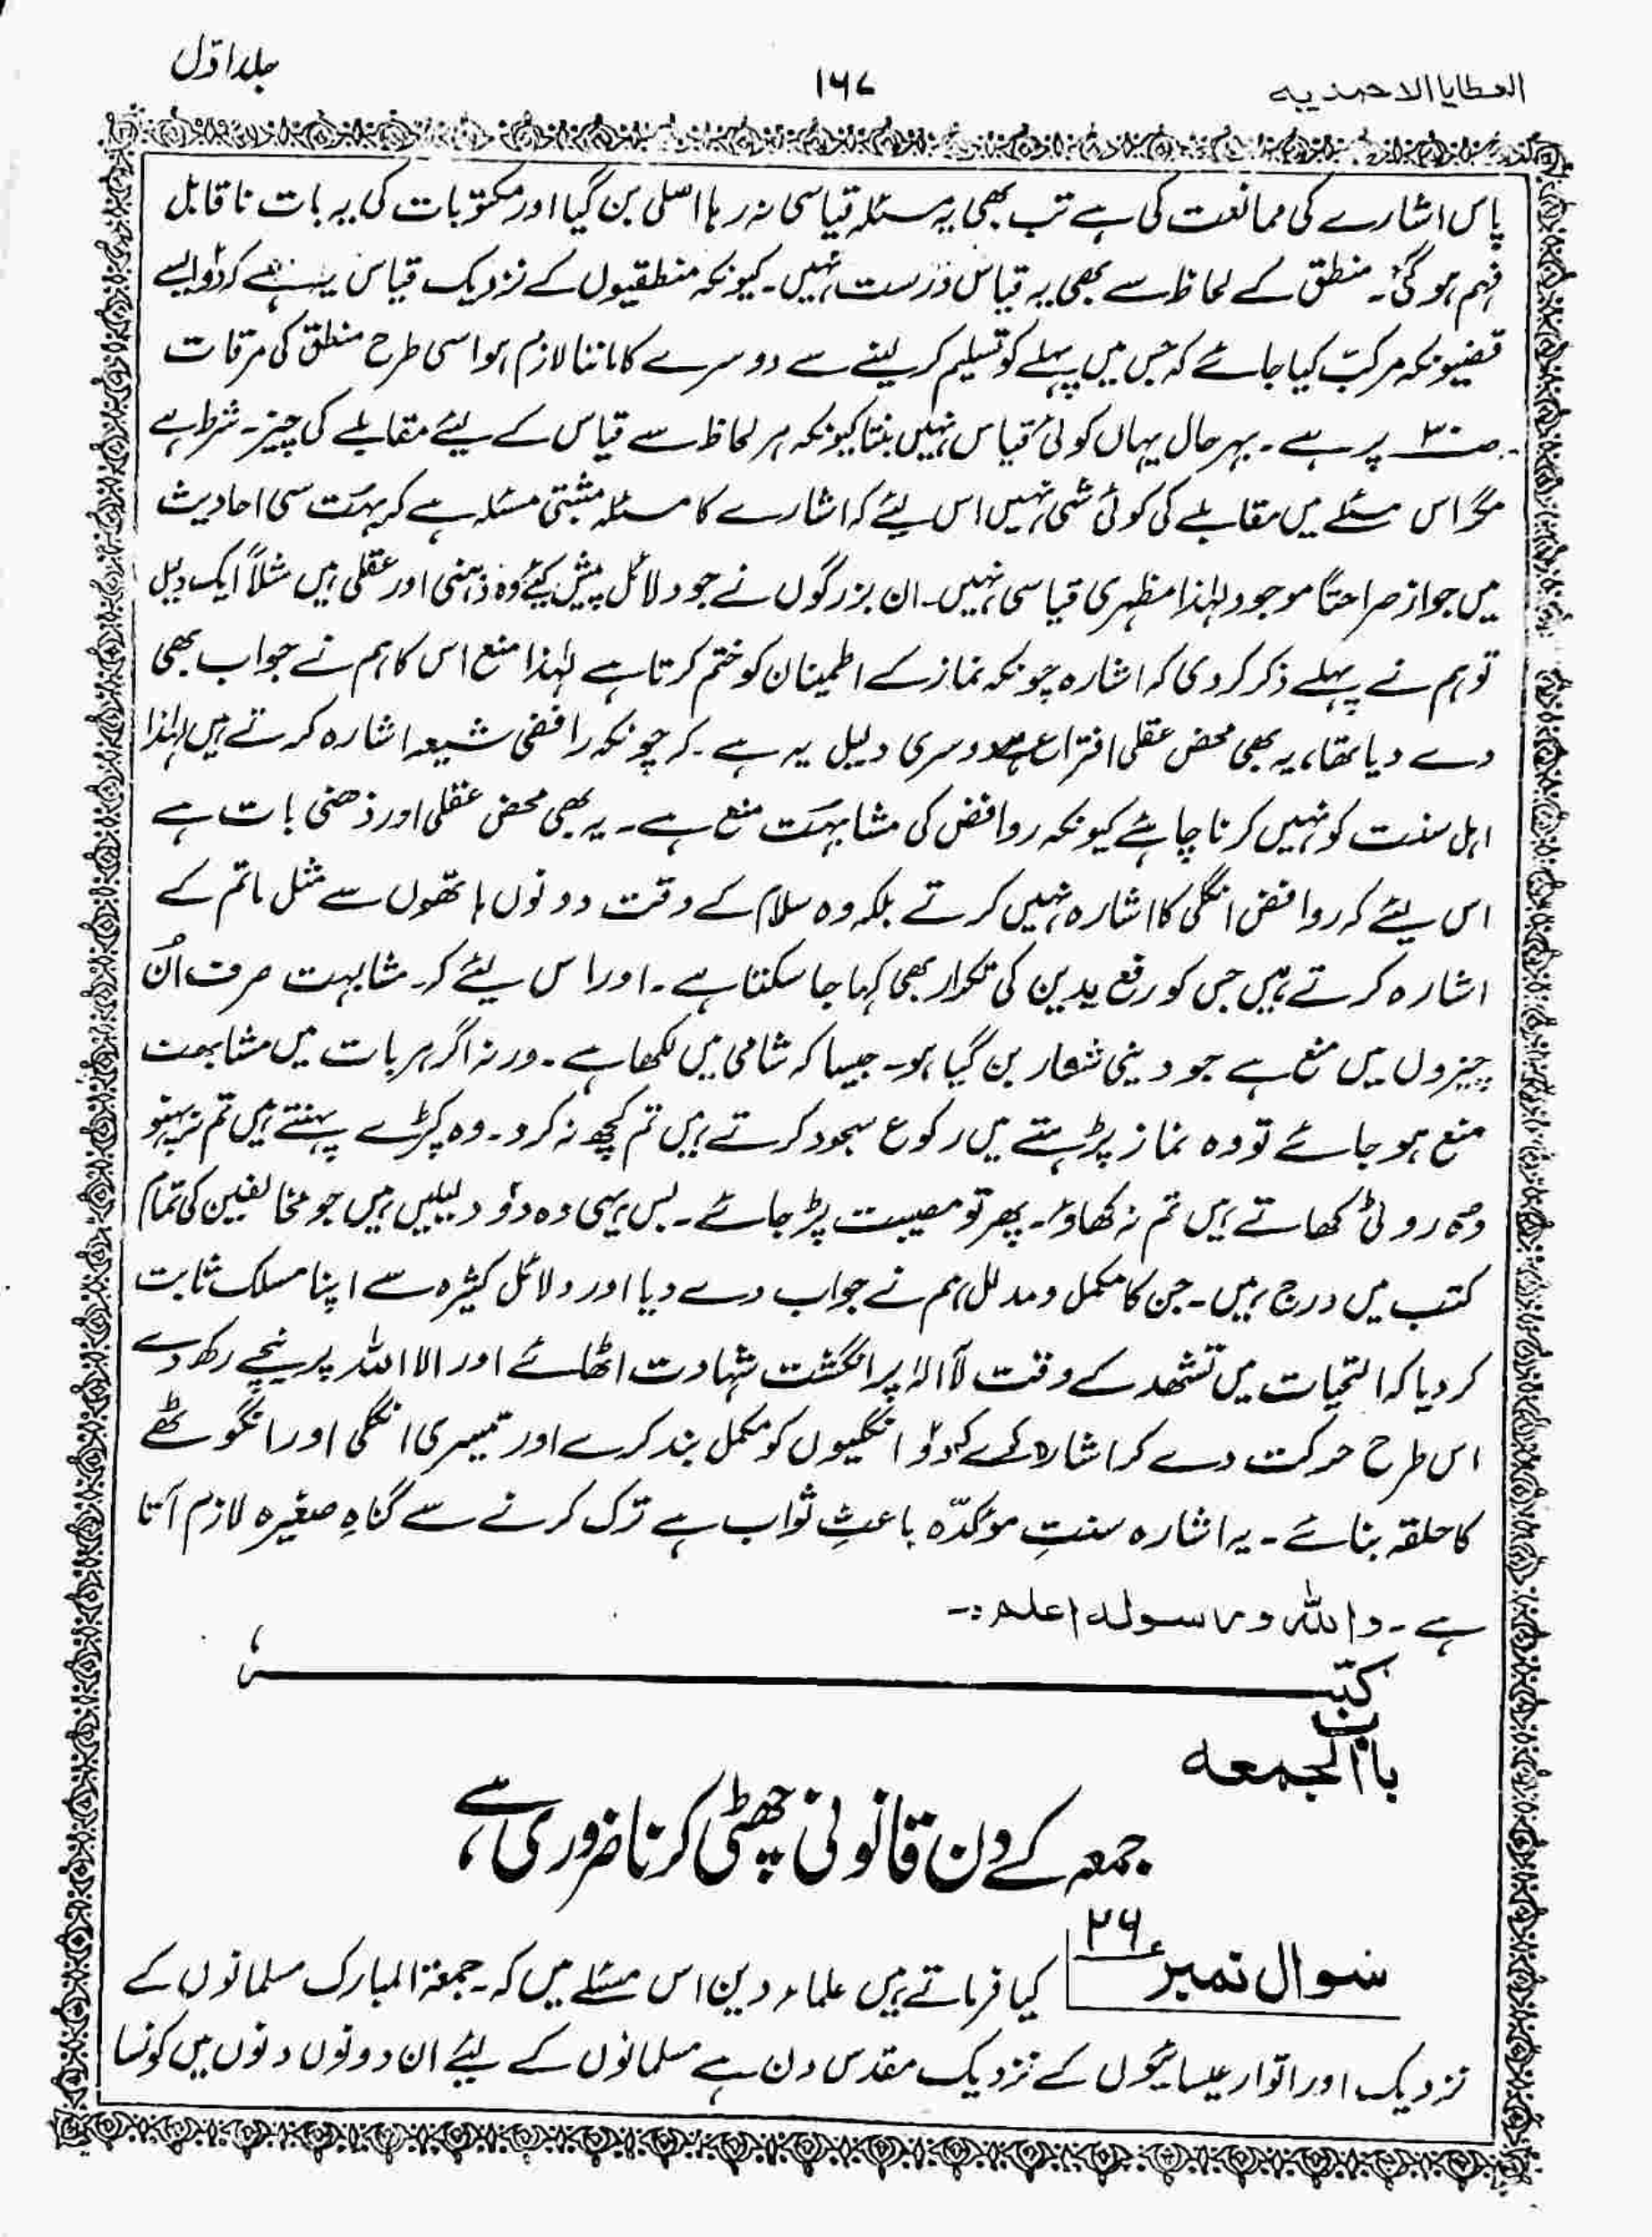 العطایا الاحمدیہ ۱۶۷ جلد اوّل
پاس اشارے کی ممانعت کی ہے تب بھی یہ مسئلہ قیاسی نہ رہا اصلی بن گیا اور مکتوبات کی یہ بات ناقابل
فہم ہو گئی۔ منطق کے لحاظ سے بھی یہ قیاس درست نہیں۔ کیونکہ منطقیوں کے نزدیک قیاس یہ ہے کہ دو ایسے
قضیونکہ مرکب کیا جائے کہ جس میں پہلے کو تسلیم کر لینے سے دوسرے کا ماننا لازم ہو اسی طرح منطق کی مرقات
صـ۳۰ پر ہے۔ بہر حال یہاں کوئی قیاس نہیں بنتا کیونکہ ہر لحاظ سے قیاس کے لیئے مقابلے کی چیز۔ شرط ہے
مگر اس مسئلے میں مقابلے کی کوئی شی نہیں اس لیئے کہ اشارے کا مسئلہ مثبتی مسئلہ ہے کہ بہت سی احادیث
میں جواز صراحتاً موجود لہٰذا مظہری قیاسی نہیں۔ ان بزرگوں نے جو دلائل پیش کیئے وہ ذہنی اور عقلی ہیں مثلاً ایک دلیل
تو ہم نے پہلے ذکر کر دی کہ اشارہ چونکہ نماز کے اطمینان کو ختم کرتا ہے لہٰذا منع اس کا ہم نے جواب بھی
دے دیا تھا، یہ بھی محض عقلی افتراع ہے دوسری دلیل یہ ہے۔ کہ چونکہ رافضی شیعہ اشارہ کرتے ہیں لہٰذا
اہل سنت کو نہیں کرنا چاہئے کیونکہ روافض کی مشابہت منع ہے۔ یہ بھی محض عقلی اور ذھنی بات ہے
اس لیئے کہ روافض انگلی کا اشارہ نہیں کرتے بلکہ وہ سلام کے وقت دونوں ہاتھوں سے مثل ماتم کے
اشارہ کرتے ہیں جس کو رفع یدین کی تکرار بھی کہا جا سکتا ہے۔ اور اس لیئے کہ۔ مشابہت صرف اُن
چیزوں میں منع ہے جو دینی شعار بن گیا ہو۔ جیسا کہ شامی میں لکھا ہے۔ ورنہ اگر ہر بات میں مشابھت
منع ہو جائے تو وہ نماز پڑہتے ہیں رکوع سجود کرتے ہیں تم کچھ نہ کرو۔ وہ کپڑے پہنتے ہیں تم نہ پہنو
وہ روٹی کھاتے ہیں تم نہ کھاؤ۔ پھر تو مصیبت پڑ جائے۔ بس یہی وہ دو دلیلیں ہیں جو مخالفین کی تمام
کتب میں درج ہیں۔ جن کا مکمل و مدلل ہم نے جواب دے دیا اور دلائل کثیرہ سے اپنا مسلک ثابت
کر دیا کہ التحیات میں تشھد کے وقت لاَالہٰ پر انگشت شہادت اٹھائے اور الا اللہ پر نیچے رکھ دے
اس طرح حرکت دے کر اشارہ کرے کہ دو انگلیوں کو مکمل بند کرے اور تیسری انگلی اور انگوٹھے
کا حلقہ بنائے۔ یہ اشارہ سنتِ مؤکدّہ باعثِ ثواب ہے ترک کرنے سے گناہِ صغیرہ لازم آتا
ہے۔ واللہ ورسولہ اعلم:۔
کتبــــہ
باب الجمعہ
جمعہ کے دن قانونی چھٹی کرنا ضروری ہے،
سوال نمبر ۲۶ کیا فرماتے ہیں علماء دین اس مسئلے میں کہ۔ جمعۃ المبارک مسلمانوں کے
نزدیک اور اتوار عیسائیوں کے نزدیک مقدس دن ہے مسلمانوں کے لیئے ان دونوں دنوں میں کونسا